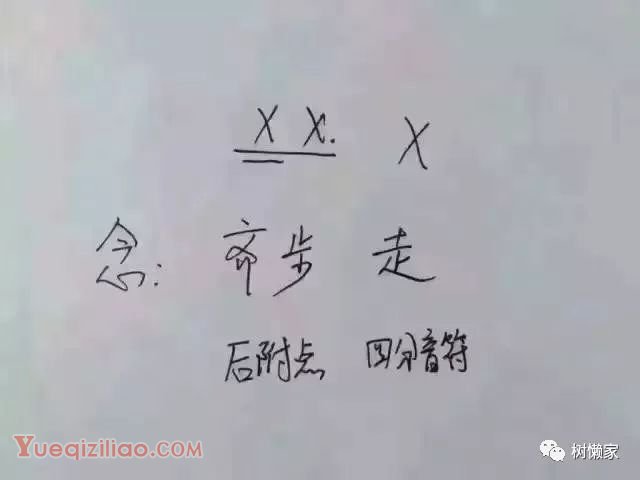 X X. X
念: 齐步 走
后附点 四分音符
YUEQIZILIAO.COM
树懒家